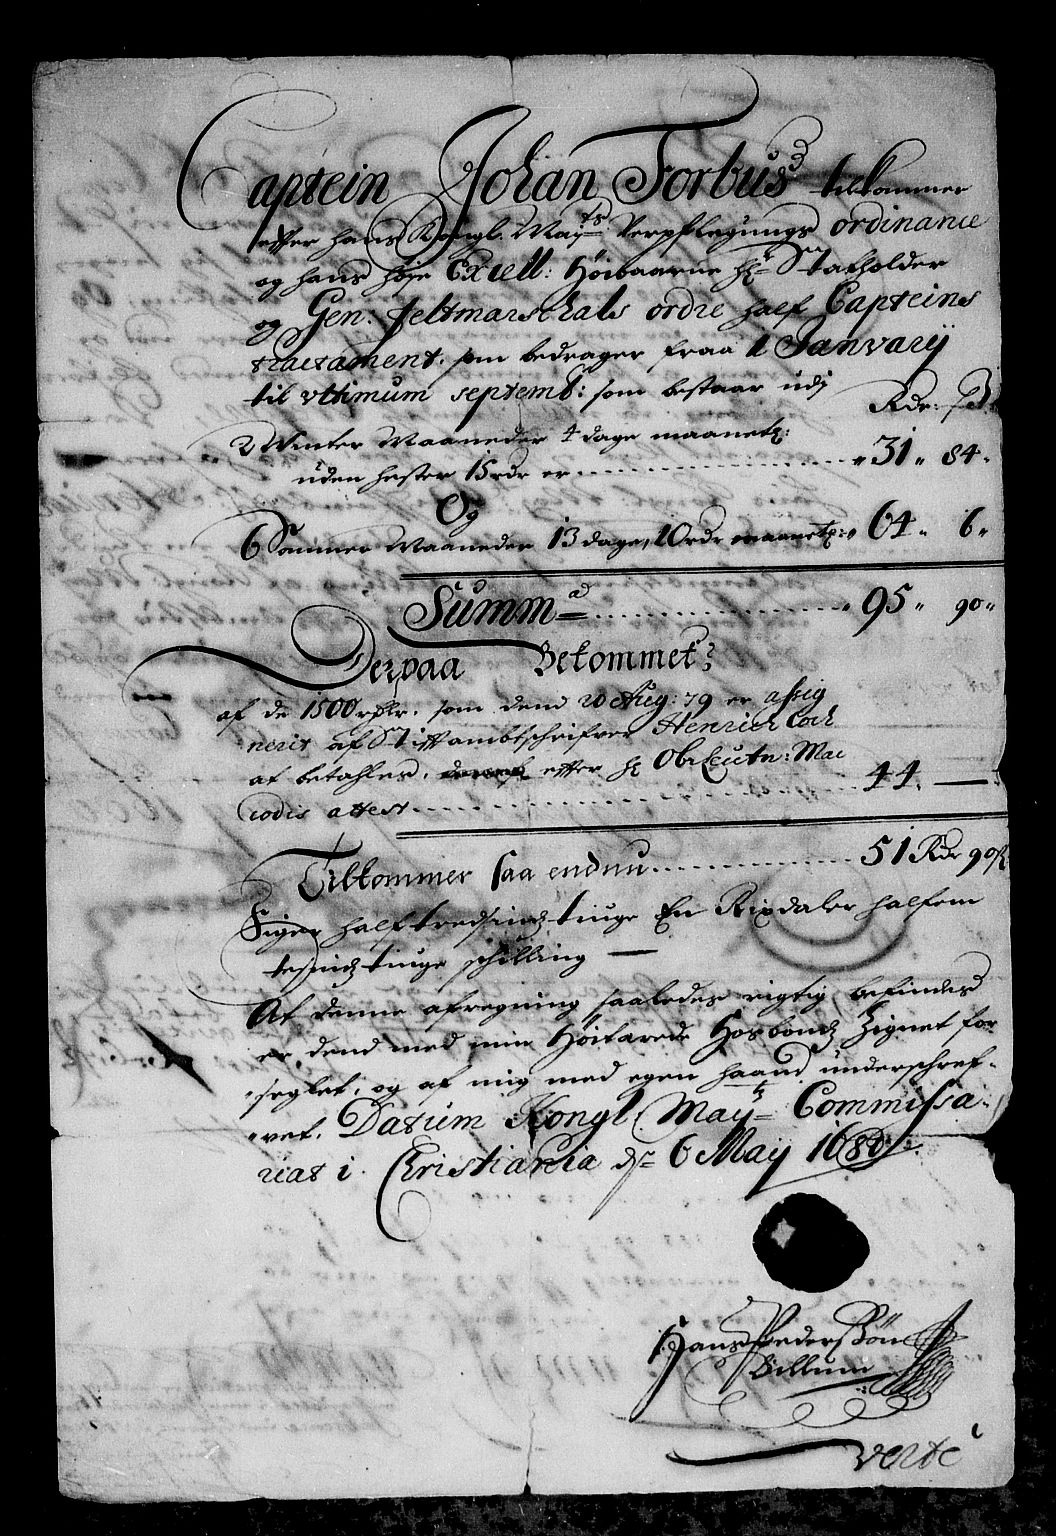 Captein Johan Forbus tilkommer
effter hans Kongl. Mayts Verpflegungs ordinance
og hans høje Excell: Höibaarne Hr Statholder
og Gen: feltmarschals ordre half Capteins
tractament. som bedrager fraa 1 Januarij
til vltimum septemb: som bestaar udj
Rdr: ß
2 Winter Maaneder 4 dage maanetl:
uden hester 15 rdr er " 31 " 84 "
Og
6 Sommer Maaneder 13 dage, 10 Rdr maanetl: " 64 " 6 "
Summa " 95 " 90 "
Derpaa Bekommet
af de 1500 rdlr. som dend 20 Aug: 79 er assig
nerit af Stiftambtschrifver Henrich Coch
at betahles, effter Hr Obr Leutn: Mac
codis attest 44. —
Tilkommer saa endnu 51 Rdr 90 ß
Siger halftredsindstiuge En Rixdaler halfem
tesindstiuge schilling —
At denne afregning saaledes rigtig befindes
er dend med min Höitærede Hosbonds Zignet for
seglet, og af mig med egen haand underschref-
vet. Datum Kongl. Mayts Commissa-
riat i Christiania ds 6 May 1680
Hans Pedersøn
Billum
verte